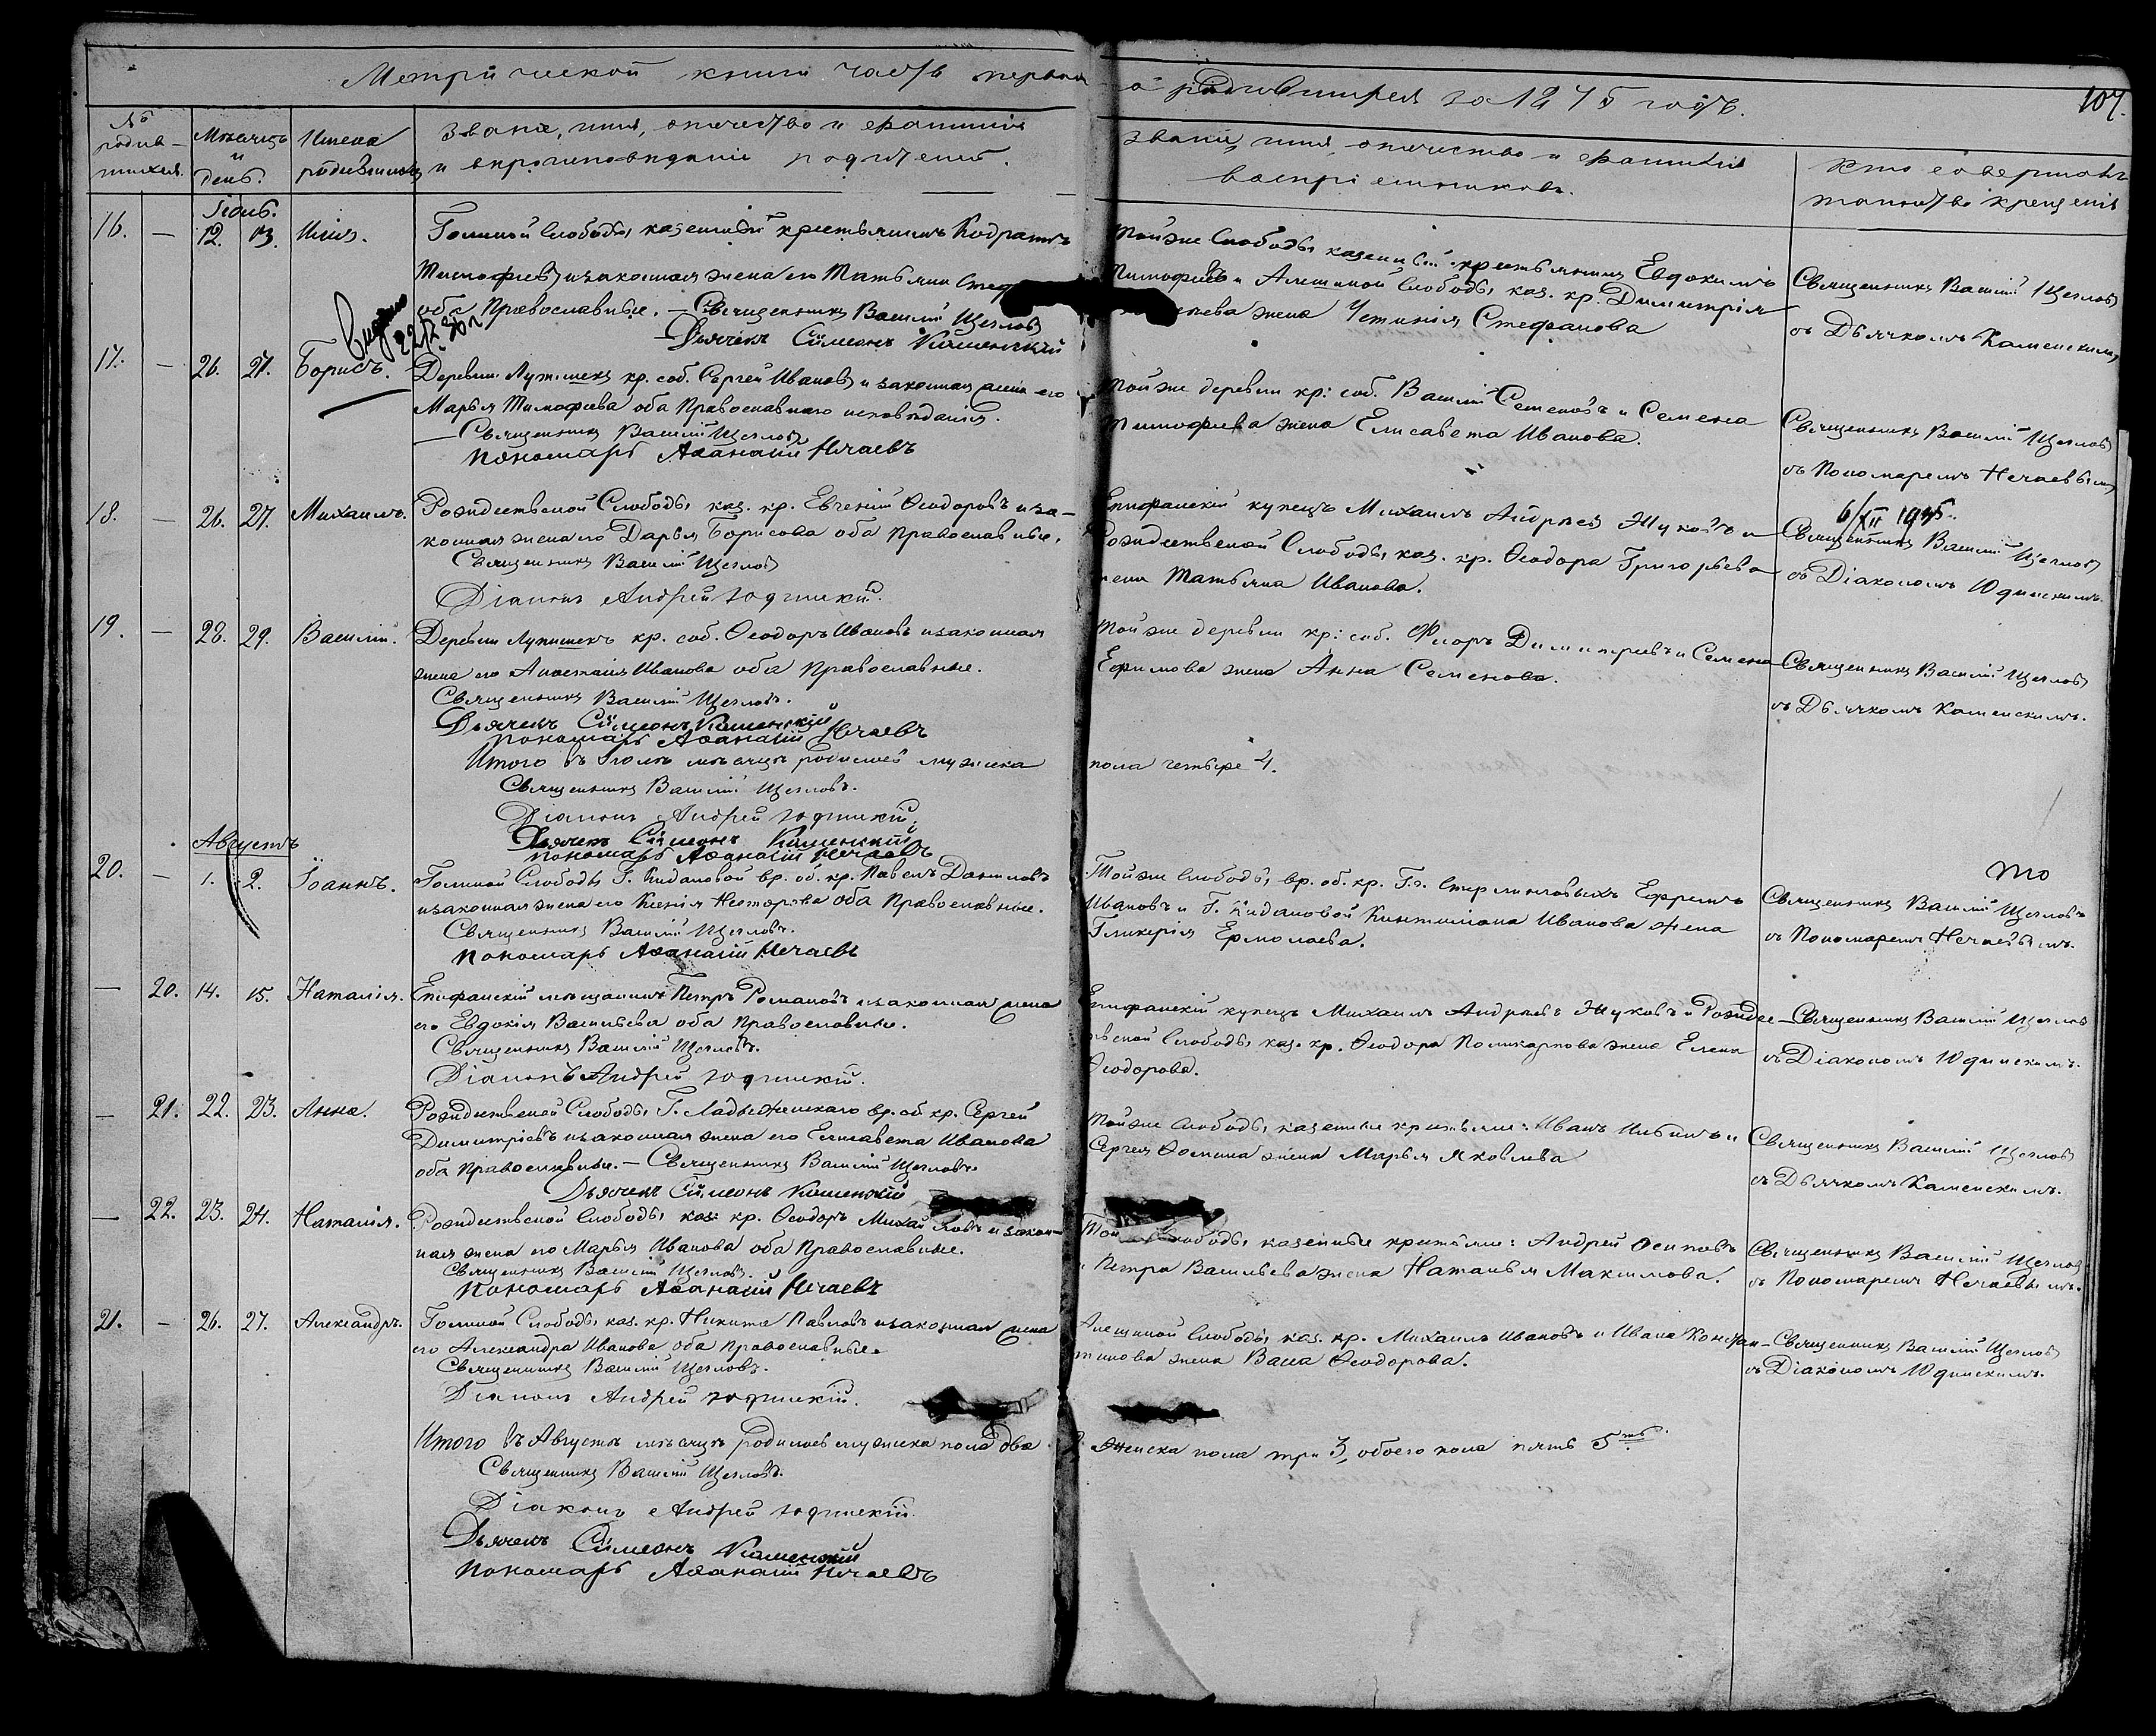 Метрической книги часть первая о родившихся за 1875 годъ.
107.
№ родив-
шихся.
Мѣсяцъ
и
день.
Имена
родившихъ
Званіе, имя, отечество и фамилія
и вѣроисповѣданіе родителей.
Званіе, имя, отечество и фамилія
воспріемниковъ.
Кто совершалъ
таинство крещенія
Іюль.
16. — 12. 13. Илія.
слободы казенный крестьянинъ Кодратъ
Тимофѣевъ и законная жена его Татьяна
оба Православные. — Священникъ Василій Щегловъ
Дьячекъ Сѵмеонъ Каменскій
Тойже слободы казенный крестьянинъ Евдокимъ
Тимофѣевъ и слободы каз. кр. Димитрія
жена Устинія Стефанова
Священникъ Василій Щегловъ
съ Дьячкомъ Каменскимъ
17. — 26. 27. Борисъ.
Деревни кр. соб. Сергей Ивановъ и законная жена его
Марья Тимофѣева оба Православнаго исповѣданія.
— Священникъ Василій Щегловъ
Пономарь Аѳанасій Нечаевъ
Тойже деревни кр: соб. Василій Семеновъ и Семена
Тимофеева жена Елисавета Иванова.
Священникъ Василій Щегловъ
съ Пономаремъ Нечаевымъ
18. — 26. 27. Михаилъ.
Рождественой Слободы каз. кр. Евгеній Ѳеодоровъ и за-
конная жена его Дарья Борисова оба православные.
Священникъ Василій Щегловъ
Діаконъ Андрей Юдинскій.
Епифанскій купецъ Михаилъ Андреевъ Жуковъ и
Рождественой Слободы каз. кр. Ѳеодора Григорьева
жена Татьяна Иванова.
6/XII
Священникъ Василій Щегловъ
съ Діакономъ Юдинскимъ.
19. — 28. 29. Василій.
Деревни кр. соб. Ѳеодоръ Ивановъ и законная
жена его Анастасія Иванова оба православные.
Священникъ Василій Щегловъ.
Дьячекъ Сѵмеонъ Каменскій
Пономарь Аѳанасій Нечаевъ
Тойже деревни кр: соб. Флоръ Димитріевъ и Семена
Ефимова жена Анна Семенова.
Священникъ Василій Щегловъ
съ Дьячкомъ Каменскимъ.
Итого въ Іюлѣ мѣсяцѣ родилось мужска пола четыре 4.
Священникъ Василій Щегловъ.
Діаконъ Андрей Юдинскій.
Дьячекъ Сѵмеонъ Каменскій
Пономарь Аѳанасій Нечаевъ
Августъ
20. — 1. 2. Іоаннъ.
Слободы Г. Кидановой вр. об. кр. Павелъ Даниловъ
и законная жена его Ксенія Несторова оба Православные.
Священникъ Василій Щегловъ.
Пономарь Аѳанасій Нечаевъ
Тойже слободы вр. об. кр. Ефремъ
Ивановъ и Г. Кидановой Иванова жена
Гликерія Ермолаева.
то
Священникъ Василій Щегловъ
съ Пономаремъ Нечаевымъ.
— 20. 14. 15. Наталія.
Епифанскій мѣщанинъ Петръ Романовъ и законная жена
его Евдокія Васильева оба православные.
Священникъ Василій Щегловъ.
Діаконъ Андрей Юдинскій.
Епифанскій купецъ Михаилъ Андреевъ Жуковъ и Рождес-
твеной Слободы каз. кр. Ѳеодора Поликарпова жена Елена
Ѳеодорова.
Священникъ Василій Щегловъ
съ Діакономъ Юдинскимъ.
— 21. 22. 23. Анна.
Рождественой Слободы Г. Ладыженскаго вр. об. кр. Сергей
Димитріевъ и законная жена его Елисавета Иванова
оба православные. — Священникъ Василій Щегловъ
Дьячекъ Сѵмеонъ Каменскій
Тойже слободы казенные крестьяне: Иванъ и
Сергея Ѳомина жена Марья Яковлева
Священникъ Василій Щегловъ
съ Дьячкомъ Каменскимъ.
— 22. 23. 24. Наталія.
Рождественой Слободы каз. кр. Ѳеодоръ Михайловъ и закон-
ная жена его Марья Иванова оба Православные.
Священникъ Василій Щегловъ.
Пономарь Аѳанасій Нечаевъ
Той слободы казенные крестьяне: Андрей Осиповъ
и Петра Васильева жена Наталья Максимова.
Священникъ Василій Щегловъ
съ Пономаремъ Нечаевымъ.
21. — 26. 27. Александръ.
Слободы каз. кр. Никита Павловъ и законная жена
его Александра Иванова оба православные.
Священникъ Василій Щегловъ.
Діаконъ Андрей Юдинскій.
слободы каз. кр. Михаилъ Ивановъ и Ивана Констан-
тинова жена Васса Ѳеодорова.
Священникъ Василій Щегловъ
съ Діакономъ Юдинскимъ.
Итого въ Августѣ мѣсяцѣ родилось мужска пола два женска пола три 3, обоего пола пять 5ть.
Священникъ Василій Щегловъ.
Діаконъ Андрей Юдинскій.
Дьячекъ Сѵмеонъ Каменскій
Пономарь Аѳанасій Нечаевъ